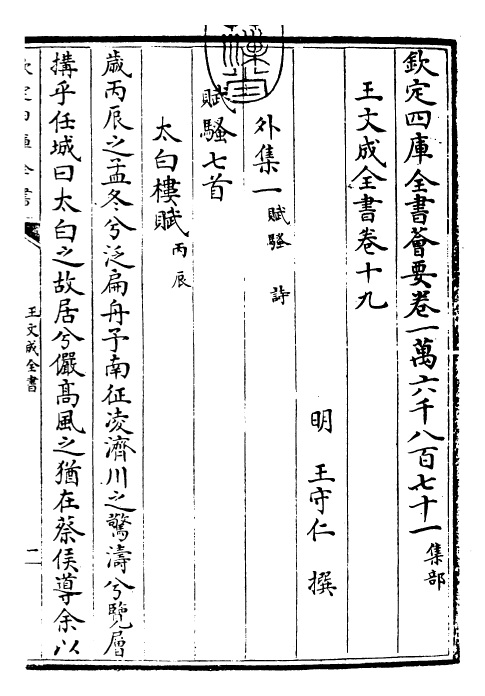 欽定四庫全書薈要卷一萬六千八百七十一 集部
王文成全書卷十九
明 王守仁 撰
外集一 賦騷 詩
賦騷七首
太白樓賦 丙辰
歲丙辰之孟冬兮泛扁舟予南征凌濟川之驚濤兮覽層
搆乎任城曰太白之故居兮儼髙風之猶在蔡侯導余以
王文成全書
一